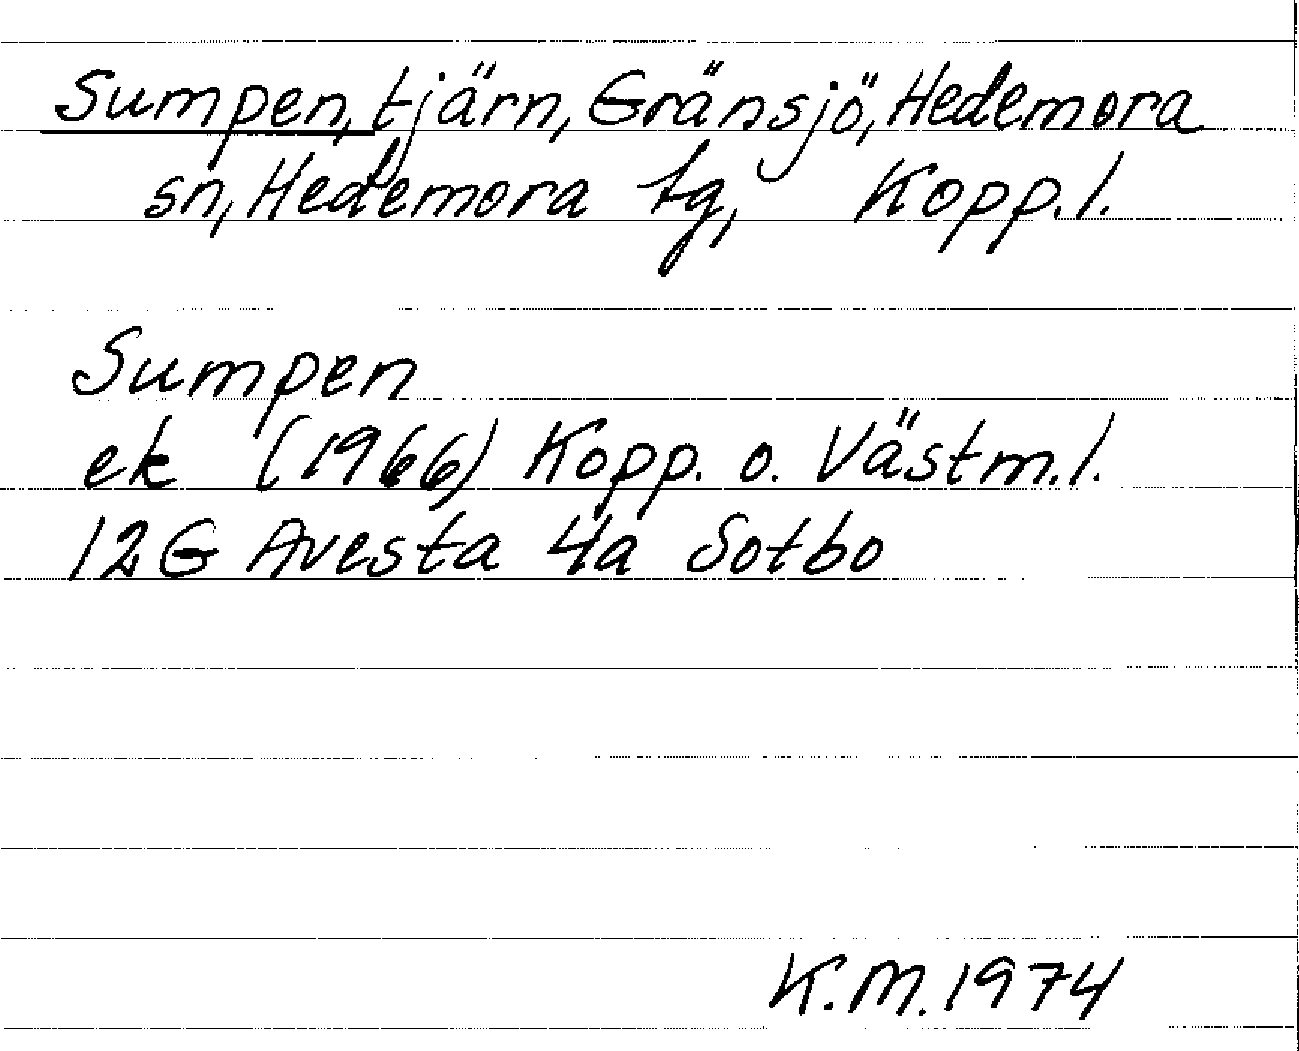 Sumpen, tjärn, Gränsjö, Hedemora
sn, Hedemora tg, Kopp.l.
Sumpen
ek (1966) Kopp. o. Västm.l.
12G Avesta 4a Sotbo
K.M. 1974